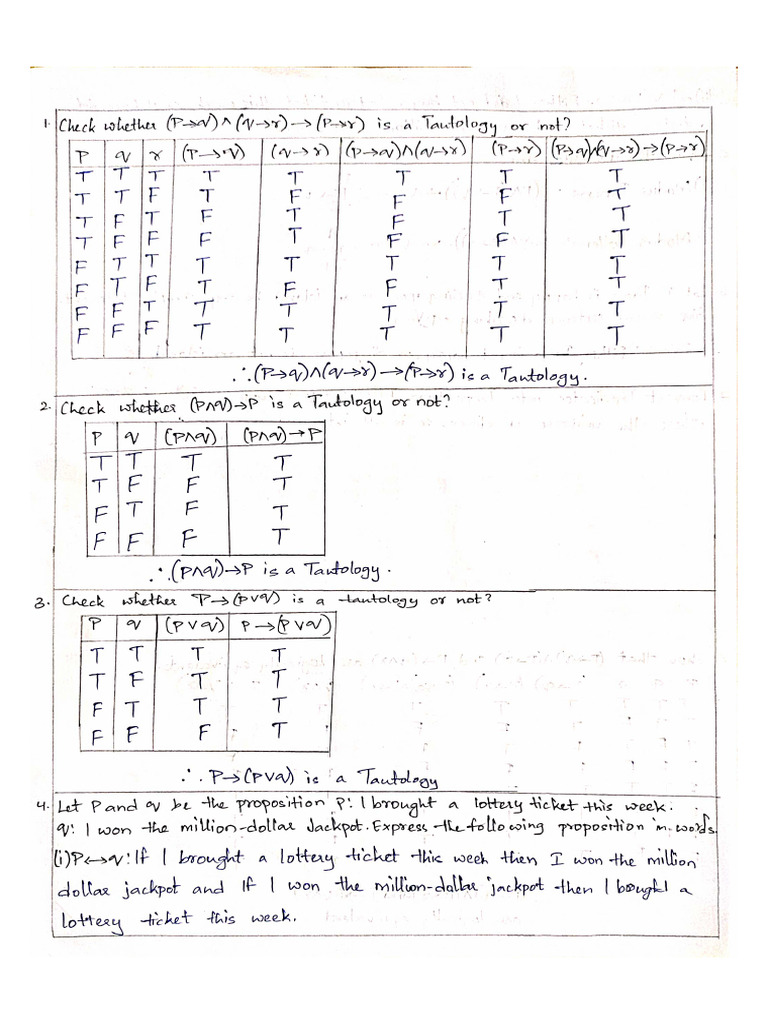 1. Check whether (P→q)∧(q→r)→(P→r) is a Tautology or not?
P q r (P→q) (q→r) (P→q)∧(q→r) (P→r) (P→q)∧(q→r)→(P→r)
T T T T T T T T
T T F T F F F T
T F T F T F T T
T F F F T F F T
F T T T T T T T
F T F T F F T T
F F T T T T T T
F F F T T T T T
∴(P→q)∧(q→r)→(P→r) is a Tautology.
2. Check whether (P∧q)→P is a Tautology or not?
P q (P∧q) (P∧q)→P
T T T T
T F F T
F T F T
F F F T
∴(P∧q)→P is a Tautology.
3. Check whether P→(P∨q) is a tautology or not?
P q (P∨q) P→(P∨q)
T T T T
T F T T
F T T T
F F F T
∴ P→(P∨q) is a Tautology
4. Let P and q be the proposition P: I brought a lottery ticket this week.
q: I won the million-dollar Jackpot. Express the following proposition in words.
(i) P↔q: If I brought a lottery ticket this week then I won the million
dollar jackpot and If I won the million-dollar jackpot then I bought a
lottery ticket this week.